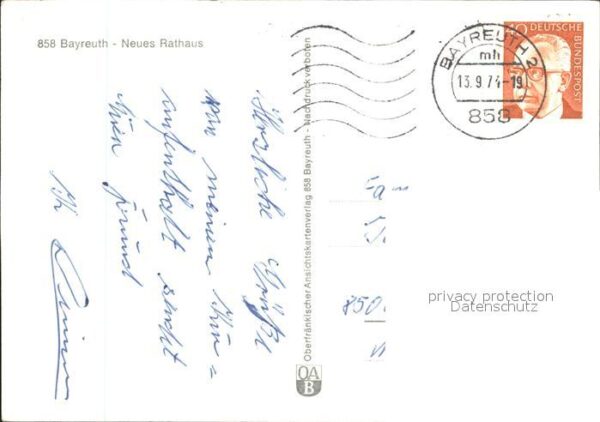 858 Bayreuth - Neues Rathaus
Herzliche Grüße
von meinem
aufenthalt sendet
Ihr
Oberfränkischer Ansichtskartenverlag 858 Bayreuth - Nachdruck verboten
OA
B
BAYREUTH 2
mh
13.9.74-19
858
DEUTSCHE
BUNDESPOST
Fam
850
privacy protection
Datenschutz